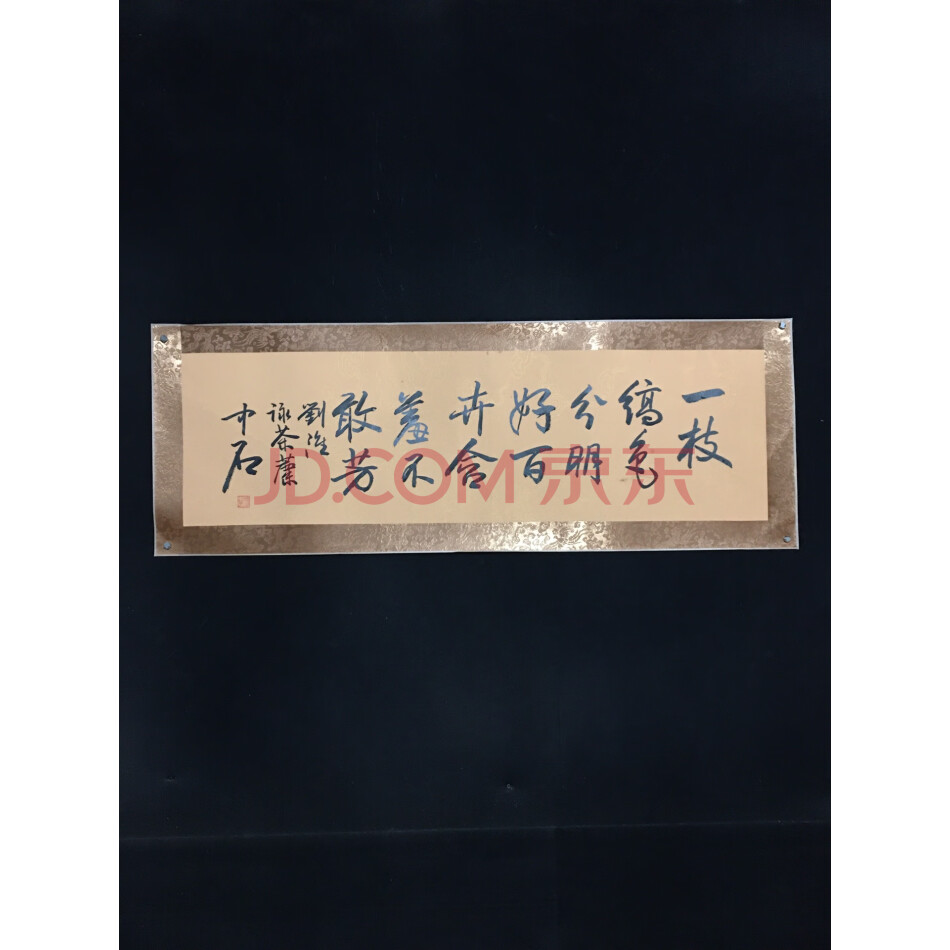 一枝
縞色
分明
好百
卉含
羞不
敢芳
劉
詠荼蘼
中石
JD.COM 京东